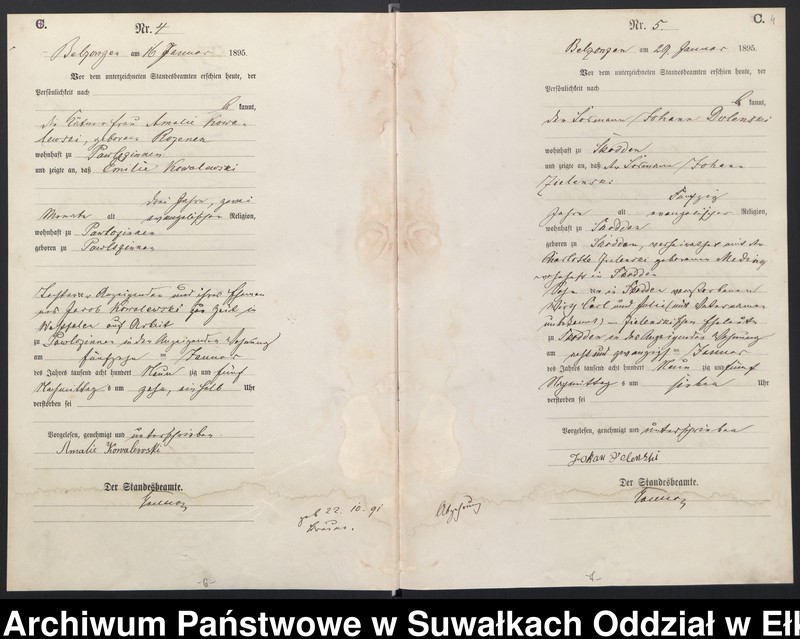 C.
Nr. 4
Belzonzen am 16 Januar 1895.
Vor dem unterzeichneten Standesbeamten erschien heute, der
Persönlichkeit nach
kannt,
die frau Amalie Kowa-
lewski, geborene Rozenen
wohnhaft zu Pawlozinnen
und zeigte an, daß Emilie Kowalewski
drei Jahre, zwei
Monate alt evangelischer Religion,
wohnhaft zu Pawlozinnen
geboren zu Pawlozinnen
Tochter der Anzeigenden und ihres Eheman
nes Jacob Kowalewski zur Zeit in
Westfalen auf Arbeit
zu Pawlozinnen in der Anzeigenden Wohnung
am fünfzehn ten Januar
des Jahres tausend acht hundert Neun zig und fünf
Nachmittag s um zehn, ein halb Uhr
verstorben sei
Vorgelesen, genehmigt und unterschrieben
Amalie Kowalewski
Der Standesbeamte.
geb 22. 10. 91
-6-
Nr. 5.
C. 4
Belzonzen am 29. Januar 1895.
Vor dem unterzeichneten Standesbeamten erschien heute, der
Persönlichkeit nach
kannt,
der Losmann Johann Dolenski
wohnhaft zu Skodden
und zeigte an, daß der Losmann Johann
Zielenski
Fünfzig
Jahre alt evangelischer Religion,
wohnhaft zu Skodden
geboren zu Skodden, verheirathet mit der
Charlotte Zielenski geborenen Meding
wohnhaft in Skodden
Sohn der in Skodden verstorbenen
Wirth Carl und Julie (mit Vatersnamen
unbekannt) - Zielenskischen Eheleute
zu Skodden in des Anzeigenden Wohnung
am acht und zwanzigst ten Januar
des Jahres tausend acht hundert Neun zig und fünf
Nachmittag s um sieben Uhr
verstorben sei
Vorgelesen, genehmigt und unterschrieben
Der Standesbeamte.
Archiwum Państwowe w Suwałkach Oddział w Eł